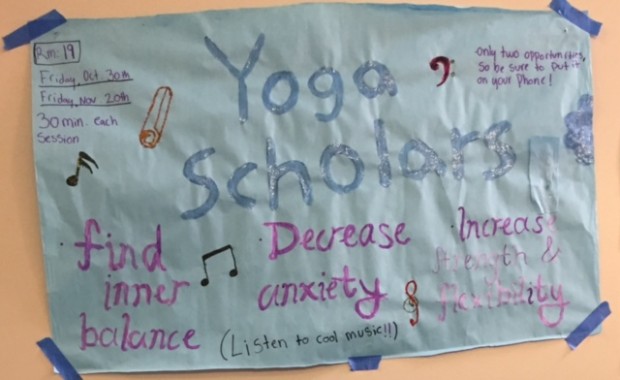 Rm: 19
Friday, Oct. 30th
Friday, Nov. 20th
30 min. each
session
Yoga
Scholars
Only two opportunities,
so be sure to put it
on your phone!
· find
inner
balance
· Decrease
anxiety
· Increase
strength &
flexibility
(Listen to cool music!!)